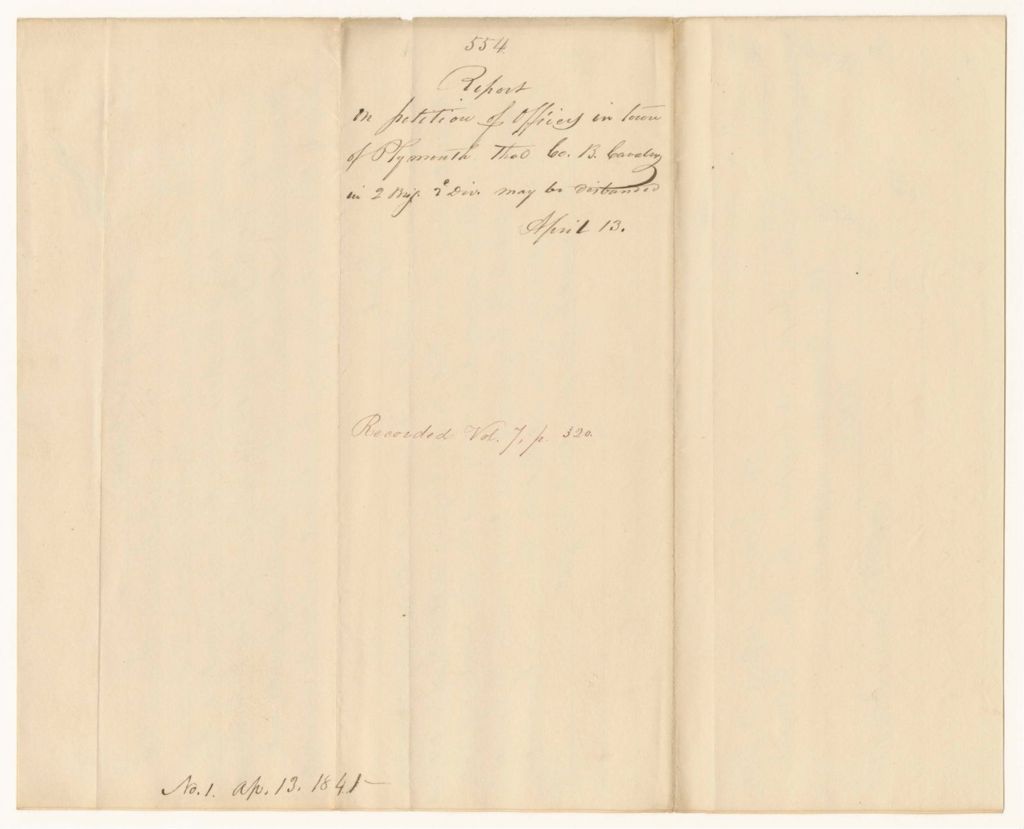 554
Report
on petition of Officers in town
of Plymouth that Co. B. Cavalry
in 2 Brig. 3d Div. may be disbanded
April 13.
Recorded Vol. 7, p. 320.
No. 1. Ap. 13. 1841